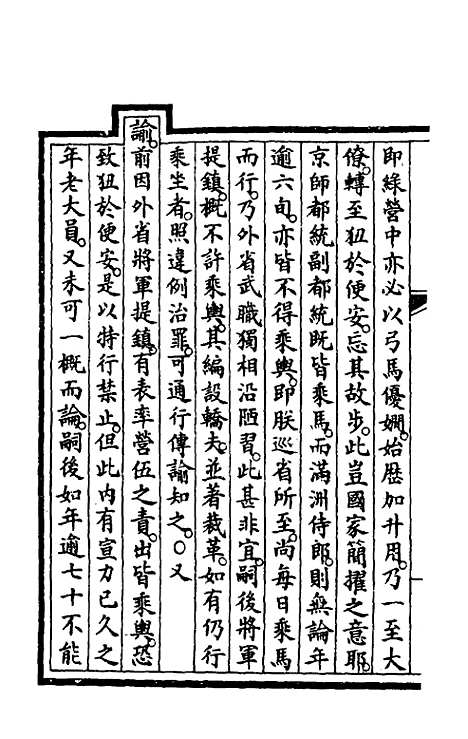 即綠營中亦必以弓馬優嫻。始歷加升用。乃一至大
僚。轉至狃於便安。忘其故步。此豈國家簡擢之意耶。
京師都統副都統既皆乘馬。而滿洲侍郎。則無論年
逾六旬。亦皆不得乘輿。即朕巡省所至。尚每日乘馬
而行。乃外省武職獨相沿陋習。此甚非宜。嗣後將軍
提鎮。概不許乘輿。其編設轎夫。並著裁革。如有仍行
乘坐者。照違例治罪。可通行傳諭知之。○又
諭。前因外省將軍提鎮。有表率營伍之責。出皆乘輿。恐
致狃於便安。是以特行禁止。但此內有宣力已久之
年老大員。又未可一概而論。嗣後如年逾七十不能